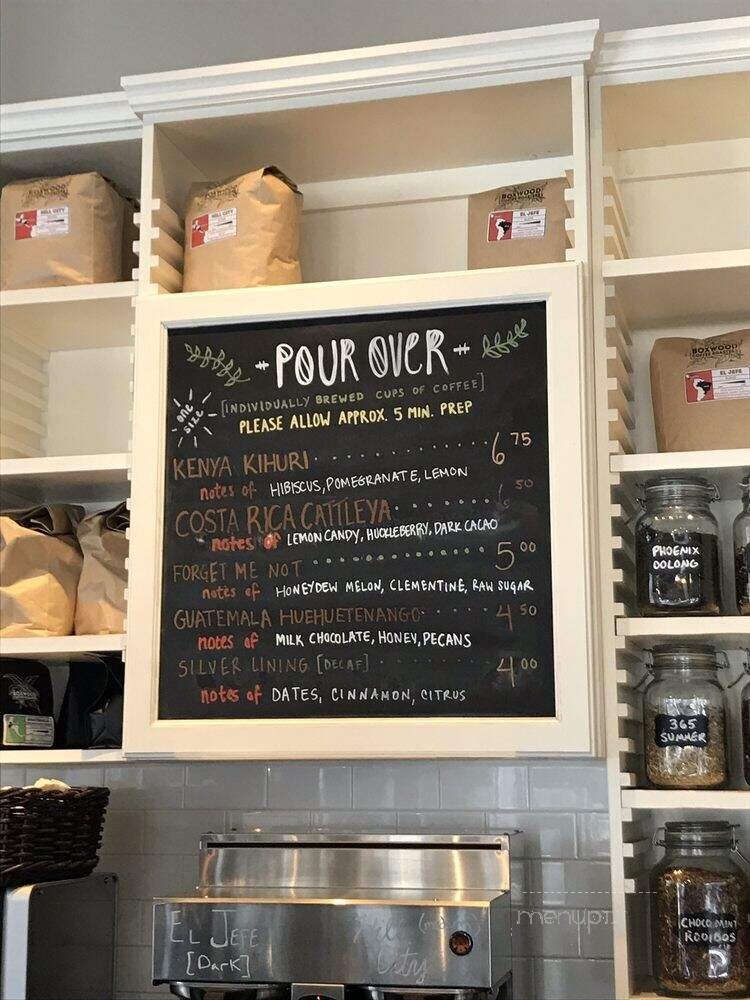 BOXWOOD
HILL CITY
HILL CITY
BOXWOOD
EL JEFE
BOXWOOD
COFFEE ROASTERS
EL JEFE
POUR OVER
ONE SIZE
[INDIVIDUALLY BREWED CUPS OF COFFEE]
PLEASE ALLOW APPROX. 5 MIN. PREP
KENYA KIHURI 6 75
notes of HIBISCUS, POMEGRANATE, LEMON
COSTA RICA CATTLEYA 6 50
notes of LEMON CANDY, HUCKLEBERRY, DARK CACAO
FORGET ME NOT 5 00
notes of HONEYDEW MELON, CLEMENTINE, RAW SUGAR
GUATEMALA HUEHUETENANGO 4 50
notes of MILK CHOCOLATE, HONEY, PECANS
SILVER LINING [DECAF] 4 00
notes of DATES, CINNAMON, CITRUS
PHOENIX
OOLONG
365
SUMMER
CHOCO MINT
ROOIBOS
EL JEFE
[Dark]
City
menupix